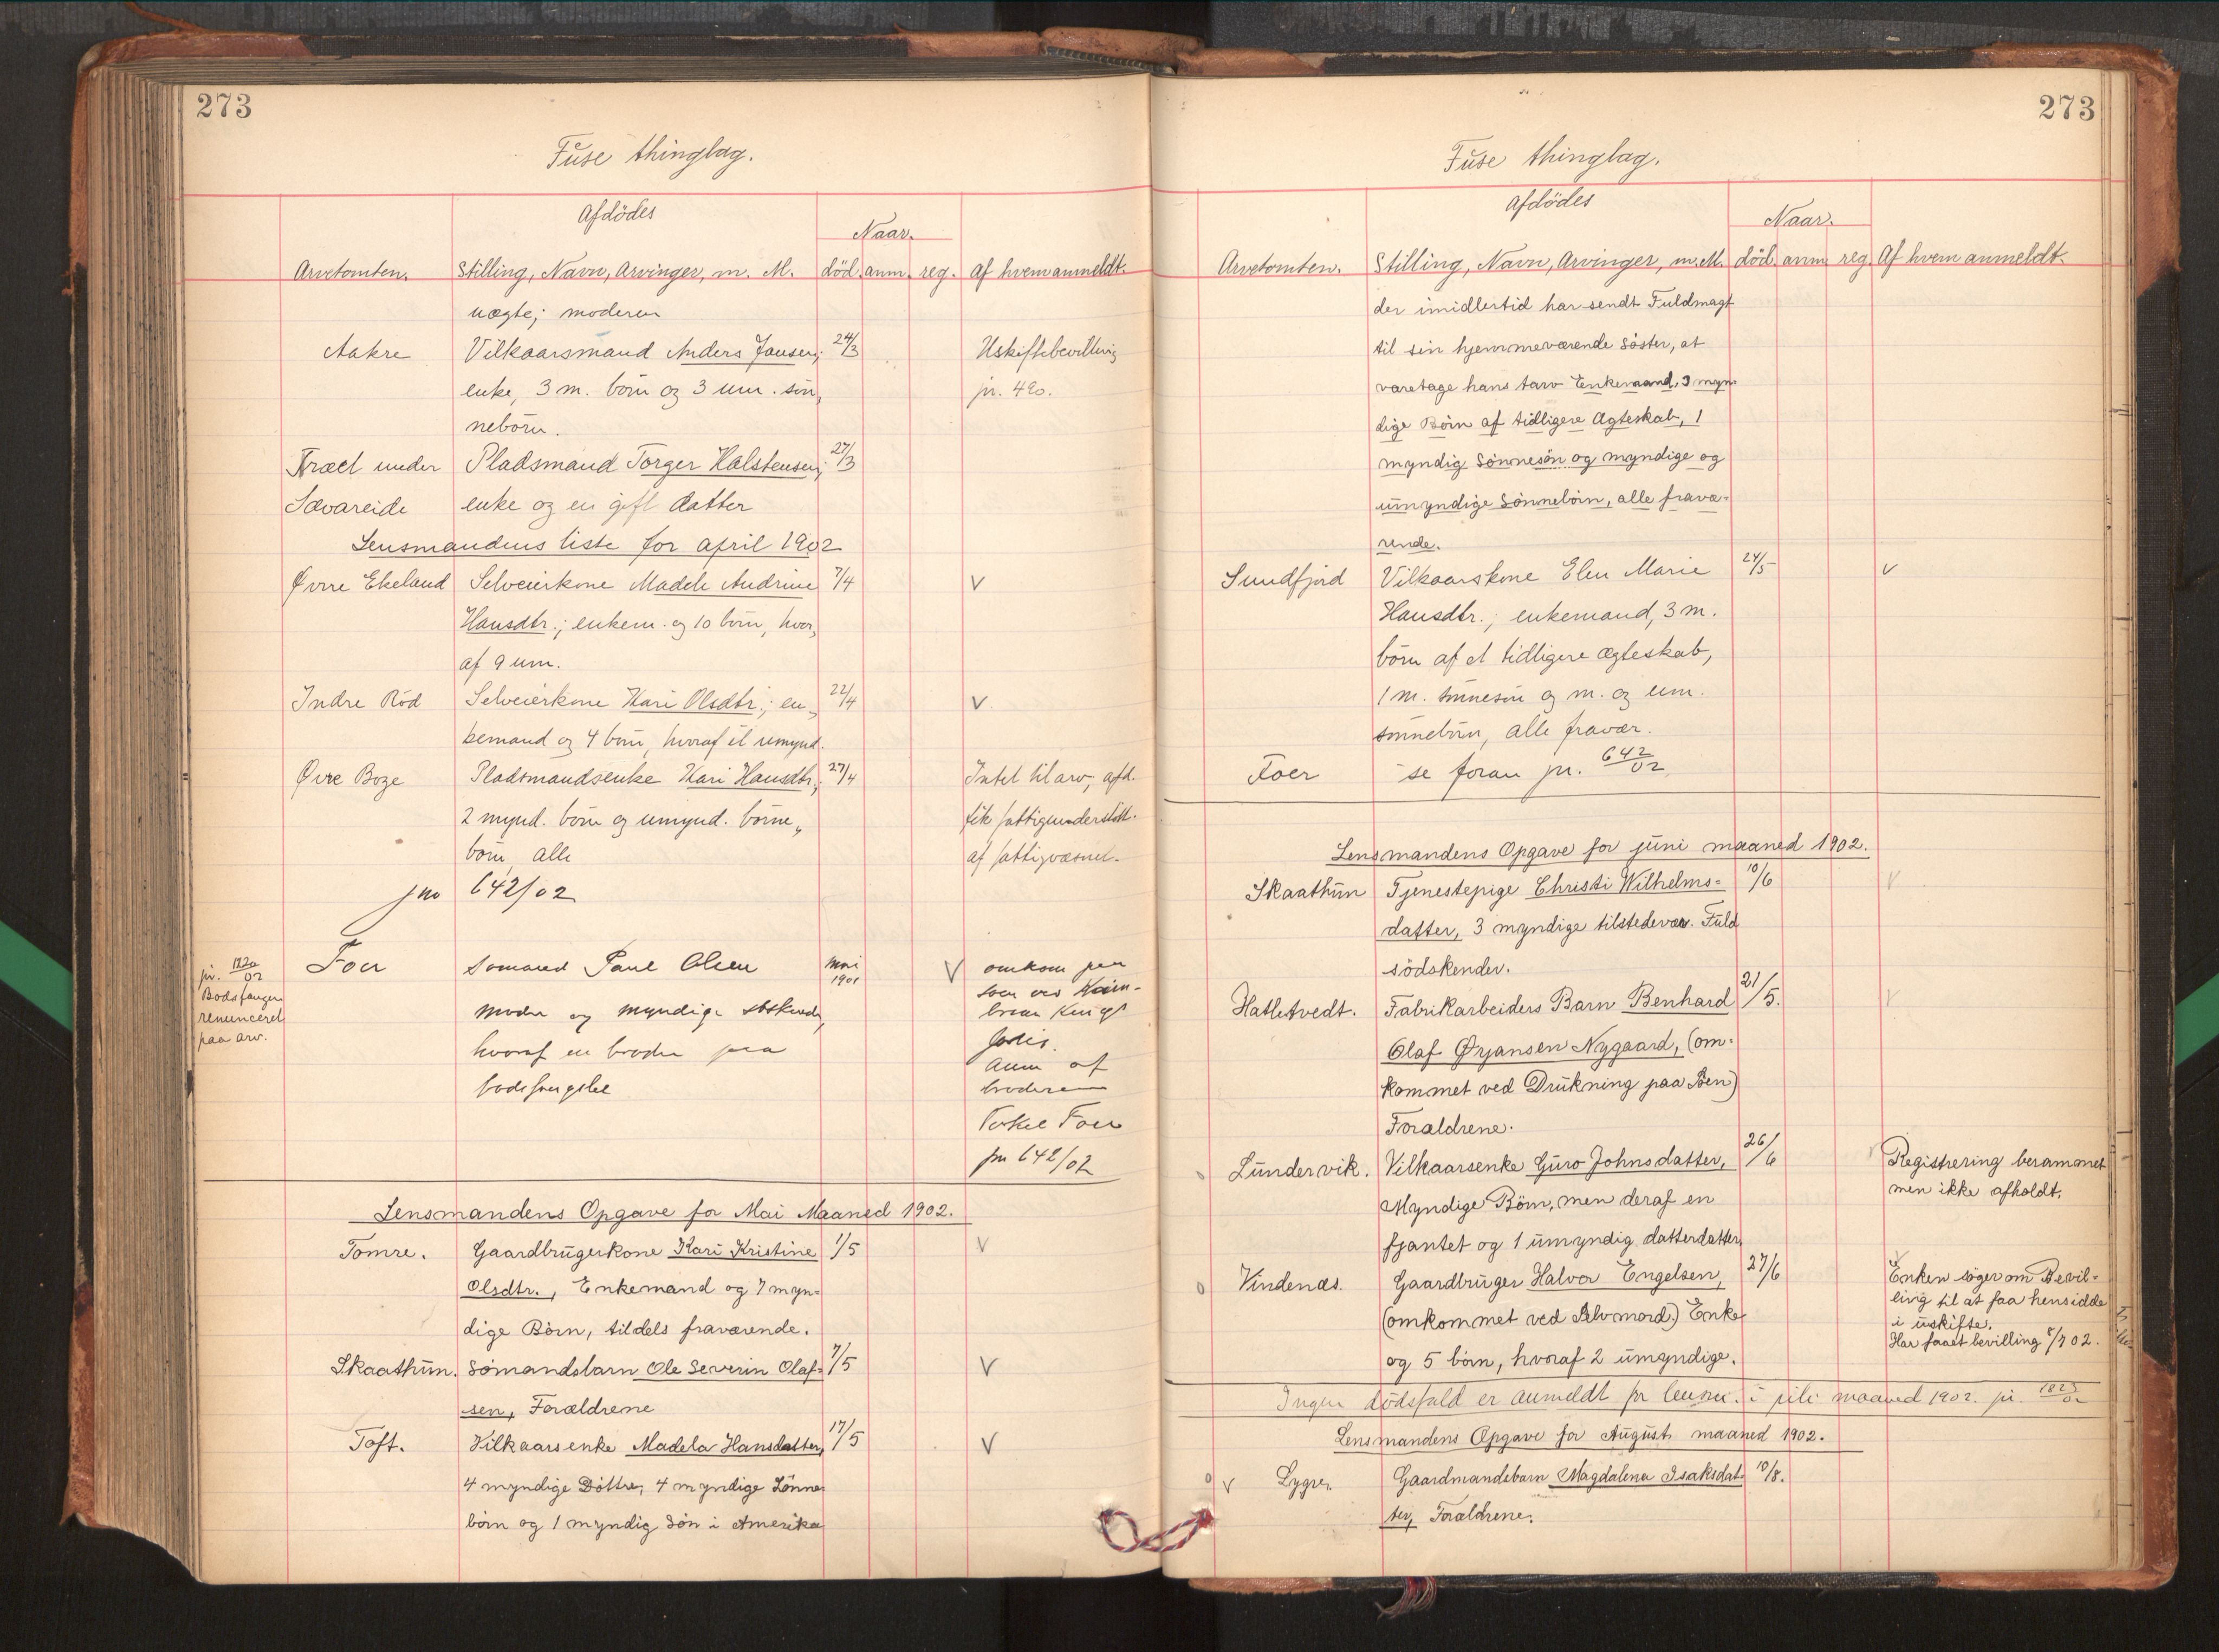 273
Fuse thinglag.
Afdödes
Naar.
Arvetomten. Stilling, Navn, Arvinger, m. M. död. anm. reg. Af hvem anmeldt.
uægte; moderen
Aakre Vilkaarsmand Anders Jansen; 24/3 Uskiftebevilling
enke, 3 m. börn og 3 um. sön, jr. 490.
nebörn.
Træet under Pladsmand Torger Halstensen; 27/3
Sævareide enke og en gift datter
Lensmandens liste for april 1902
Øvre Ekeland Selveierkone Madele Andrine 7/4 V
Hansdtr.; enkem. og 10 börn, hvor,
af 9 um.
Indre Röd Selveierkone Kari Olsdtr.; en, 22/4 V
kemand og 4 börn, hvoraf et umynd.
Øvre Boge Pladsmandsenke Kari Hansdtr.; 27/4 Intet til arv; afd.
2 mynd. börn og umynd. börne, fik fattigunderstött.
börn, alle af fattigvæsnet.
jno 642/02
Foer Sömand Paul Olsen Mai 1901 V omkom paa
jr. 1820/02
Bodsfangen
renunceret
paa arv.
moder og myndige söskende,
hvoraf en broder paa
bodsfængslet
Anm af
broderen
Torkel Foer
jno 642/02
Lensmandens Opgave for Mai Maaned 1902.
Tomre. Gaardbrugerkone Kari Kristine 1/5 V
Olsdtr., Enkemand og 7 myn=
dige Börn, tildels fraværende.
Skaathun. Sömandsbarn Ole Severin Olaf= 7/5 V
sen, Forældrene
Toft. Vilkaarsenke Madela Hansdatter, 17/5 V
4 myndige Döttre, 4 myndige Sönne
börn og 1 myndig Sön i Amerika
273
Fuse thinglag.
Afdödes
Naar.
Arvetomten. Stilling, Navn, Arvinger, m. M. död. anm. reg. Af hvem anmeldt.
der imidlertid har sendt Fuldmagt
til sin hjemmeværende Söster, at
varetage hans tarv Enkemand, 3 myn=
dige Börn af tidligere Ægteskab, 1
myndig Sönnesön og myndige og
umyndige Sönnebörn, alle fravæ=
rende.
Sundfjord Vilkaarskone Elen Marie 24/5 V
Hansdtr.; enkemand, 3 m.
börn af et tidligere ægteskab,
1 m. sönnesön og m. og um.
sönnebörn, alle fravær.
Foer se foran jr. 642/02
Lensmandens Opgave for juni maaned 1902.
Skaathun Tjenestepige Christi Wilhelms= 10/6 V
datter, 3 myndige tilstedevær. Fuld
södskender.
Hatletvedt. Fabrikarbeiders Barn Benhard 21/5. V
Olaf Ørjansen Nygaard, (om=
kommet ved Drukning paa Söen)
Forældrene.
Lundervik. Vilkaarsenke Guro Johnsdatter, 26/6 Registrering berammet
Myndige Börn, men deraf en men ikke afholdt.
fjantet og 1 umyndig datterdatter
Vindenæs. Gaardbruger Halvor Engelsen, 27/6 Enken söger om Bevil=
(omkommet ved Selvmord.) Enke ling til at faa hensidde
og 5 börn, hvoraf 2 umyndige. i uskifte.
Har faaet bevilling 8/7 02.
Ingen dödsfald er anmeldt fra lensm. i juli maaned 1902. jr. 1823/02
Lensmandens Opgave for August maaned 1902.
V Lygre. Gaardmandsbarn Magdalena Isaksdat 10/8.
ter, Forældrene.